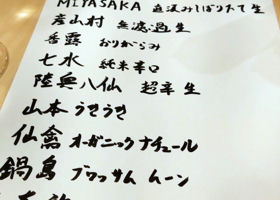 MIYASAKA 直汲みしぼりたて生
産山村 無濾過生
岳露 おりがらみ
七水 純米辛口
陸奥八仙 超辛 生
山本 うきうき
仙禽 オーガニックナチュール
鍋島 ブロッサムムーン